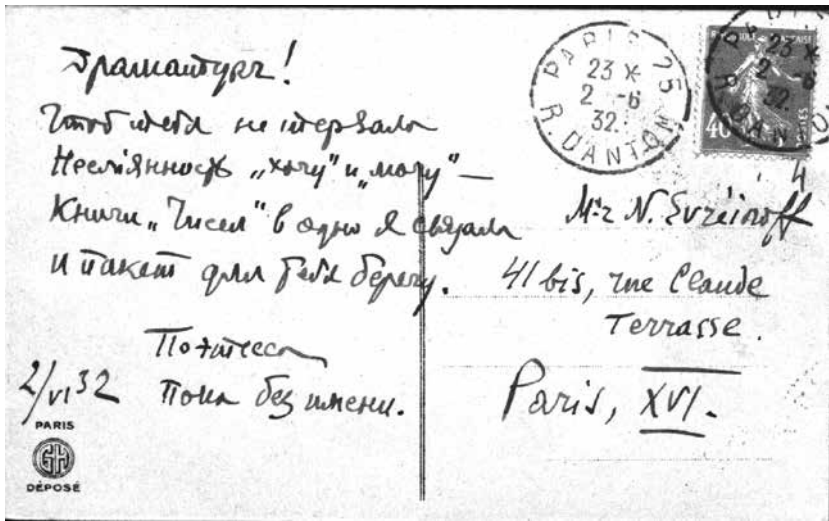 Драматургъ!
Чтоб тебя не терзала
Неслiянность „хочу" и „могу" —
Книги „Чисел" в одно я связала
И пакет для тебя берегу.
Поэтесса
Пока без имени.
2/VI 32
PARIS
GH
DÉPOSÉ
PARIS 25
23 *
2 - 6
32.
R. DANTON
23 *
2 - 6
32.
40
4
M-r N. Evréinoff
41 bis, rue Claude
Terrasse.
Paris, XVI.